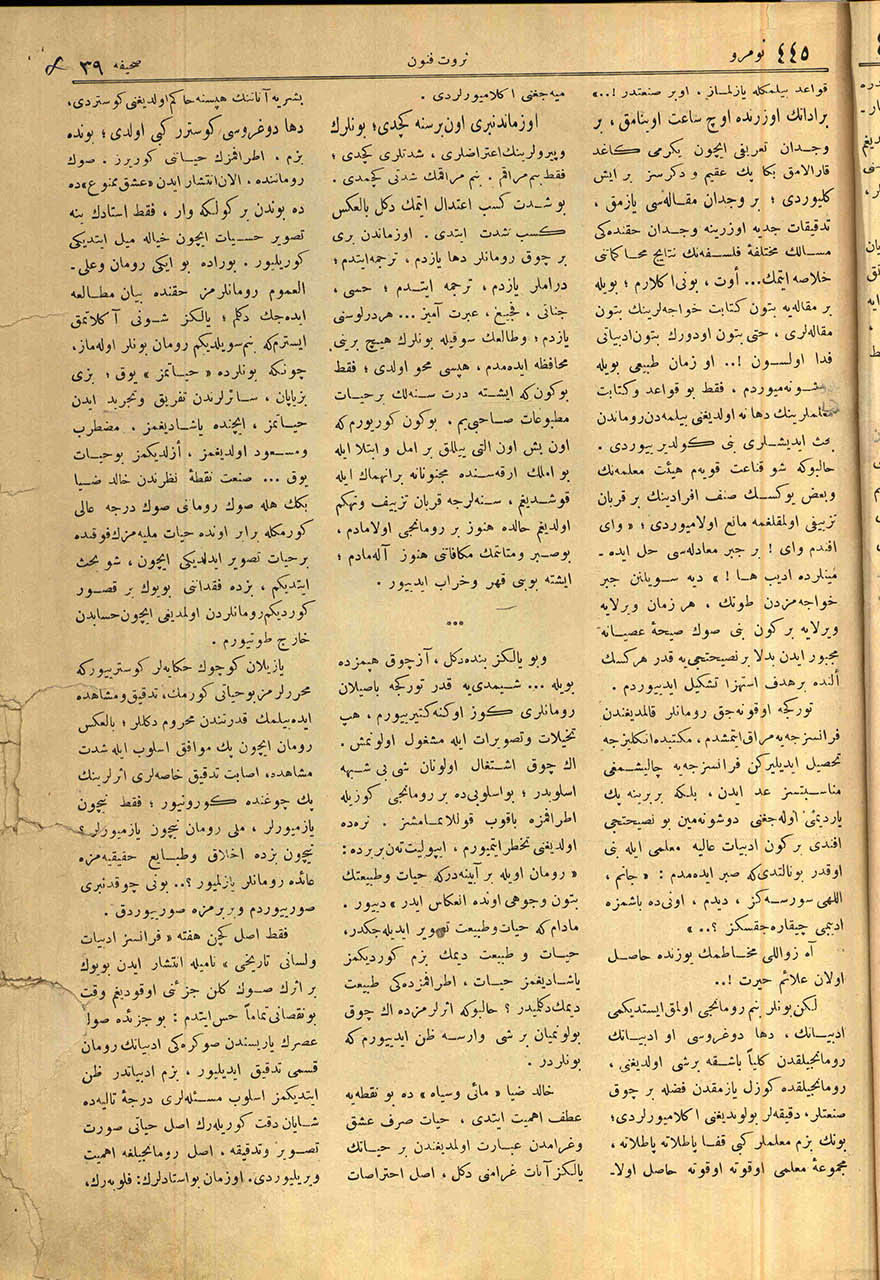 ٤٤٥ نومرو
ثروت فنون
صحیفه ٣٩
قواعد بیلمکله یازلماز ، اوبر صنعتدر !.. »
برادانك اوزرنده اوچ ساعت اوینامق ، بر
وجدان تعریفی ایچون یکرمی كاغد
قارالامق بكا پك عقیم و دکرسز برایش
کلیوردی ؛ بر وجدان مقاله‌سی یازمق ،
تدقیقات جدیه اوزرینه وجدان حقنده‌كی
مسالك مختلفهٔ فلسفه‌نك نتایج محاكماتنی
خلاصه ایتمك... أوت ، بونی اكلارم ؛ بویله
بر مقاله‌یه بتون كتابت خواجه‌لرینك بتون
مقاله‌لری ، حتی بتون اودورك بتون ادبیاتی
فدا اولسون !.. او زمان طبیعی بویله
شونه‌میوردم ، فقط بو قواعد وكتابت
معلملرینك دها نه اولدیغنی بیلمه‌دن روماندن
بحث ایدیشلری بنی كولدیریوردی .
حالبوكه شو قناعت قویه‌م هیئت معلمه‌نك
وبعض یوكسك صنف افرادینك بر قربان
تزییفی اولمقلغمه مانع اولامیوردی ؛ « وای
افندم وای ! بر جبر معادله‌سی حل ایده ـ
میینلرده ادیب ها ! » دیه سویلنن جبر
خواجه‌مزدن طوتك ، هر زمان وبرلایه
وبرلایه بركون بنی صوك صیحهٔ عصیانه
مجبور ایدن بدلا بر نصیحتجی‌یه قدر هركسك
ألنده برهدف استهزا تشكیل ایدییوردم .
توركجه اوقونه‌جق رومانلر قالمدیغندن
فرانسزجه‌یه مراق ایتمشدم ، مكتبده انكلیزجه
تحصیل ایدیلیركن فرانسزجه‌یه چالیشمغی
مناسبتسز عد ایدن ، بلكه بربرینه پك
یاردیمی اوله‌جغنی دوشونه‌مین بو نصیحتجی
افندی بركون ادبیات عالیه معلمی ایله بنی
اوقدر بوكالتدی‌كه صبر ایده‌مدم : « جانم ،
اللهی سورسه‌كز ، دیدم ، اونی‌ده باشمزه
ادیبمی چیقاره‌جقسكز ؟.. »
آه زواللی مخاطبمك یوزنده حاصل
اولان علائم حیرت !..
لكن بونلر بنم رومانجی اولمق ایستدیكمی
ادبیاتك ، دها دوغروسی او ادبیاتك
رومانجیلقدن كلیاً باشقه برشی اولدیغنی ،
رومانجیلقده كوزل یازمقدن فضله بر چوق
صنعتلر ، دقیقه‌لر بولوندیغنی اكلامیورلردی ؛
بونك بزم معلملر كبی قفا پاطلاته پاطلاته ،
مجموعهٔ معلمی اوقوته اوقوته حاصل اولا ـ
میه‌جغنی اكلامیورلردی .
اوزماندنبری اون‌برسنه كچدی ؛ بونلرك
وپیرولرینك اعتراضلری ، شدتلری كچدی ؛
فقط بنم مراقم . بنم مراقمك شدتی كچمدی .
بو شدت كسب اعتدال ایتمك دكل بالعكس
كسب شدت ایتدی . اوزماندن بری
بر چوق رومانلر دها یازدم ، ترجمه ایتدم ؛
دراملر یازدم ، ترجمه ایتدم ؛ حسی ،
جنائی ، فجیع ، عبرت آمیز ... هردرلوسنی
یازدم ؛ وطالعك سوقیله بونلرك هیچ برینی
محافظه ایده‌مدم ، هپسی محو اولدی ؛ فقط
بوكون‌كه ایشته درت سنه‌لك برحیات
مطبوعات صاحبی‌یم . بوكون كوریورم‌كه
اون بش اون التی ییللق بر امل و ابتلا ایله
بو املك ارقه‌سنده مجنونانه برانهماك ایله
قوشدیغم ، سنه‌لرجه قربان تزییف وتهكم
اولدیغم حالده هنوز بر رومانجی اولامادم ،
بوصبر ومتانتمك مكافاتنی هنوز آله‌مادم ؛
ایشته بوبنی قهر وخراب ایدییور .
***
وبو یالكز بنده‌دكل ، آزچوق هپمزده
بویله ... شیمدی‌یه قدر توركجه باصیلان
رومانلری كوز اوكنه‌كتیرییورم ، هپ
تخیلات وتصویرات ایله مشغول اولونمش .
اك چوق اشتغال اولونان شی بی شبهه
اسلوبدر ؛ بواسلوبی‌ده بر رومانجی كوزیله
اطرافمزه باقوب قوللانمامشز . نره‌ده
اولدیغنی تخطر ایتمیورم ، ایپولیت‌تهن‌بریرده :
« رومان اویله بر آیینه‌دركه حیات وطبیعتك
بتون وجوهی اونده انعكاس ایدر » دییور .
مادام‌كه حیات وطبیعت تصویر ایدیله‌جكدر ،
حیات و طبیعت دیمك بزم كوردیكمز
یاشادیغمز حیات ، اطرافمزده‌كی طبیعت
دیمك‌دكلیدر ؟ حالبوكه اثرلرمزده اك چوق
بولونمیان بر شی وارسه ظن ایدییورم‌كه
بونلردر .
خالد ضیا « مائی وسیاه » ده بو نقطه‌یه
عطف اهمیت ایتدی ، حیات صرف عشق
وغرامدن عبارت اولمدیغندن بر حیاتك
یالكز آنات غرامنی دكل ، اصل احتراصات
بشریه آناتنك هپسنه حاكم اولدیغنی كوستردی،
دها دوغروسی كوسترر كبی اولدی ؛ بونده
بزم . اطرافمزك حیاتنی كوریرز . صوك
روماننده . الآن انتشار ایدن « عشق ممنوع » ده
ده بوندن بركولكه وار ، فقط استادك ینه
تصویر حسیات ایچون خیاله میل ایتدیكی
كوریلیور . بوراده بو ایكی رومان وعلی ـ
العموم رومانلرمز حقنده بیان مطالعه
ایده‌جك دكلم ؛ یالكز شونی آكلاتمق
ایسترم‌كه بنم سویلدیكم رومان بونلر اوله‌ماز،
چونكه بونلرده « حیاتمز » یوق ؛ بزی
بزیاپان ، سائرلرندن تفریق وتجرید ایدن
حیاتمز ، ایچنده یاشادیغمز . مضطرب
ومسعود اولدیغمز ، أزلدیكمز بوحیات
یوق ... صنعت نقطهٔ نظرندن خالد ضیا
بكك هله صوك رومانی صوك درجه عالی
كورمكله برابر اونده حیات ملیه‌مزك فوقنده
برحیات تصویر ایدلدیكی ایچون ، شو بحث
ایتدیكم ، بزده فقداننی بویوك بر قصور
كوردیكم رومانلردن اولمدیغی ایچون حسابدن
خارج طوتیورم .
یازیلان كوچوك حكایه‌لر كوسترییوركه
محررلرمز بوحیاتی كورمك، تدقیق ومشاهده
ایده‌بیلمك قدرتندن محروم دكللر ؛ بالعكس
رومان ایچون پك موافق اسلوب ایله شدت
مشاهده، اصابت تدقیق خاصه‌لری اثرلرینك
پك چوغنده كورونیور ؛ فقط نیچون
یازمیورلر ، ملی رومان نیچون یازمیورلر ؟
نیچون بزده اخلاق وطبایع حقیقیه‌مزه
عائد رومانلر یازلمیور ؟.. بونی چوقدنبری
صورییوردم وبربرمزه صورییوردق .
فقط اصل كچن هفته « فرانسز ادبیات
ولسانی تاریخی » نامیله انتشار ایدن بویوك
بر اثرك صوك كلن جزئنی اوقودیغم وقت
بونقصانی تماماً حس ایتدم : بوجزئده صوك
عصرك یاریسندن صوكره‌كی ادبیاتك رومان
قسمی تدقیق ایدیلیور ، بزم ادبیاتدر ظن
ایتدیكمز اسلوب مسئله‌لری درجهٔ تالیه‌ده
شایان دقت كوریله‌رك اصل حیاتی صورت
تصویر وتدقیقه ، اصل رومانجیلغه اهمیت
ویریلیوردی. اوزمان بواستادلرك: فلوبه‌رك،